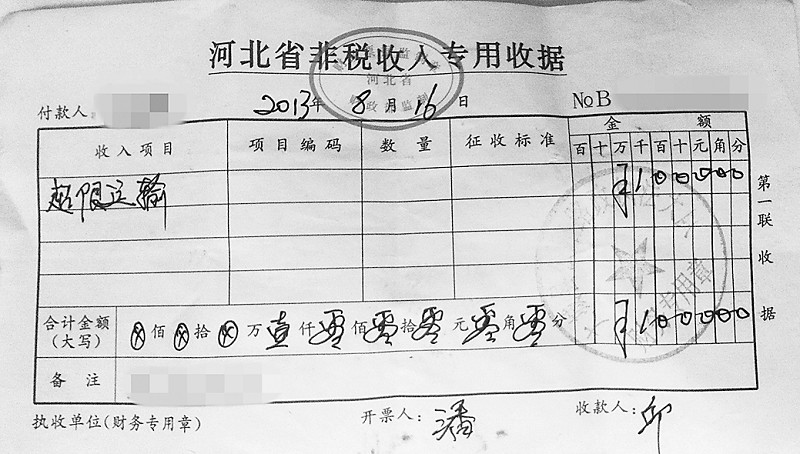 河北省非税收入专用收据
河北省
付款人 2013年 8月16日 №B
收入项目 项目编码 数量 征收标准 金额
百十万千百十元角分
超限运输 ¥100000
合计金额 ⊗佰⊗拾⊗万壹仟零佰零拾零元零角零分 ¥100000
(大写)
备注
第一联 收据
专用章
执收单位(财务专用章) 开票人:潘 收款人:邱